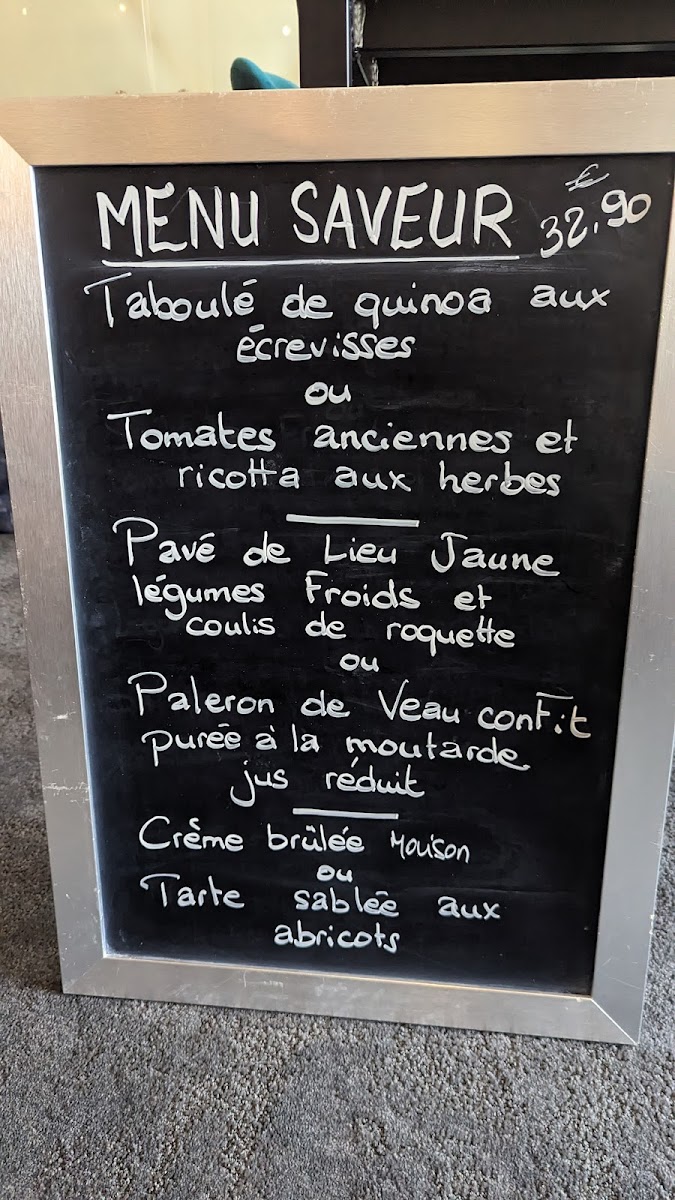 MENU SAVEUR € 32.90
Taboulé de quinoa aux
écrevisses
ou
Tomates anciennes et
ricotta aux herbes
Pavé de Lieu Jaune
légumes Froids et
coulis de roquette
ou
Paleron de Veau confit
purée à la moutarde
jus réduit
Crême brûlée Mouson
ou
Tarte sablée aux
abricots